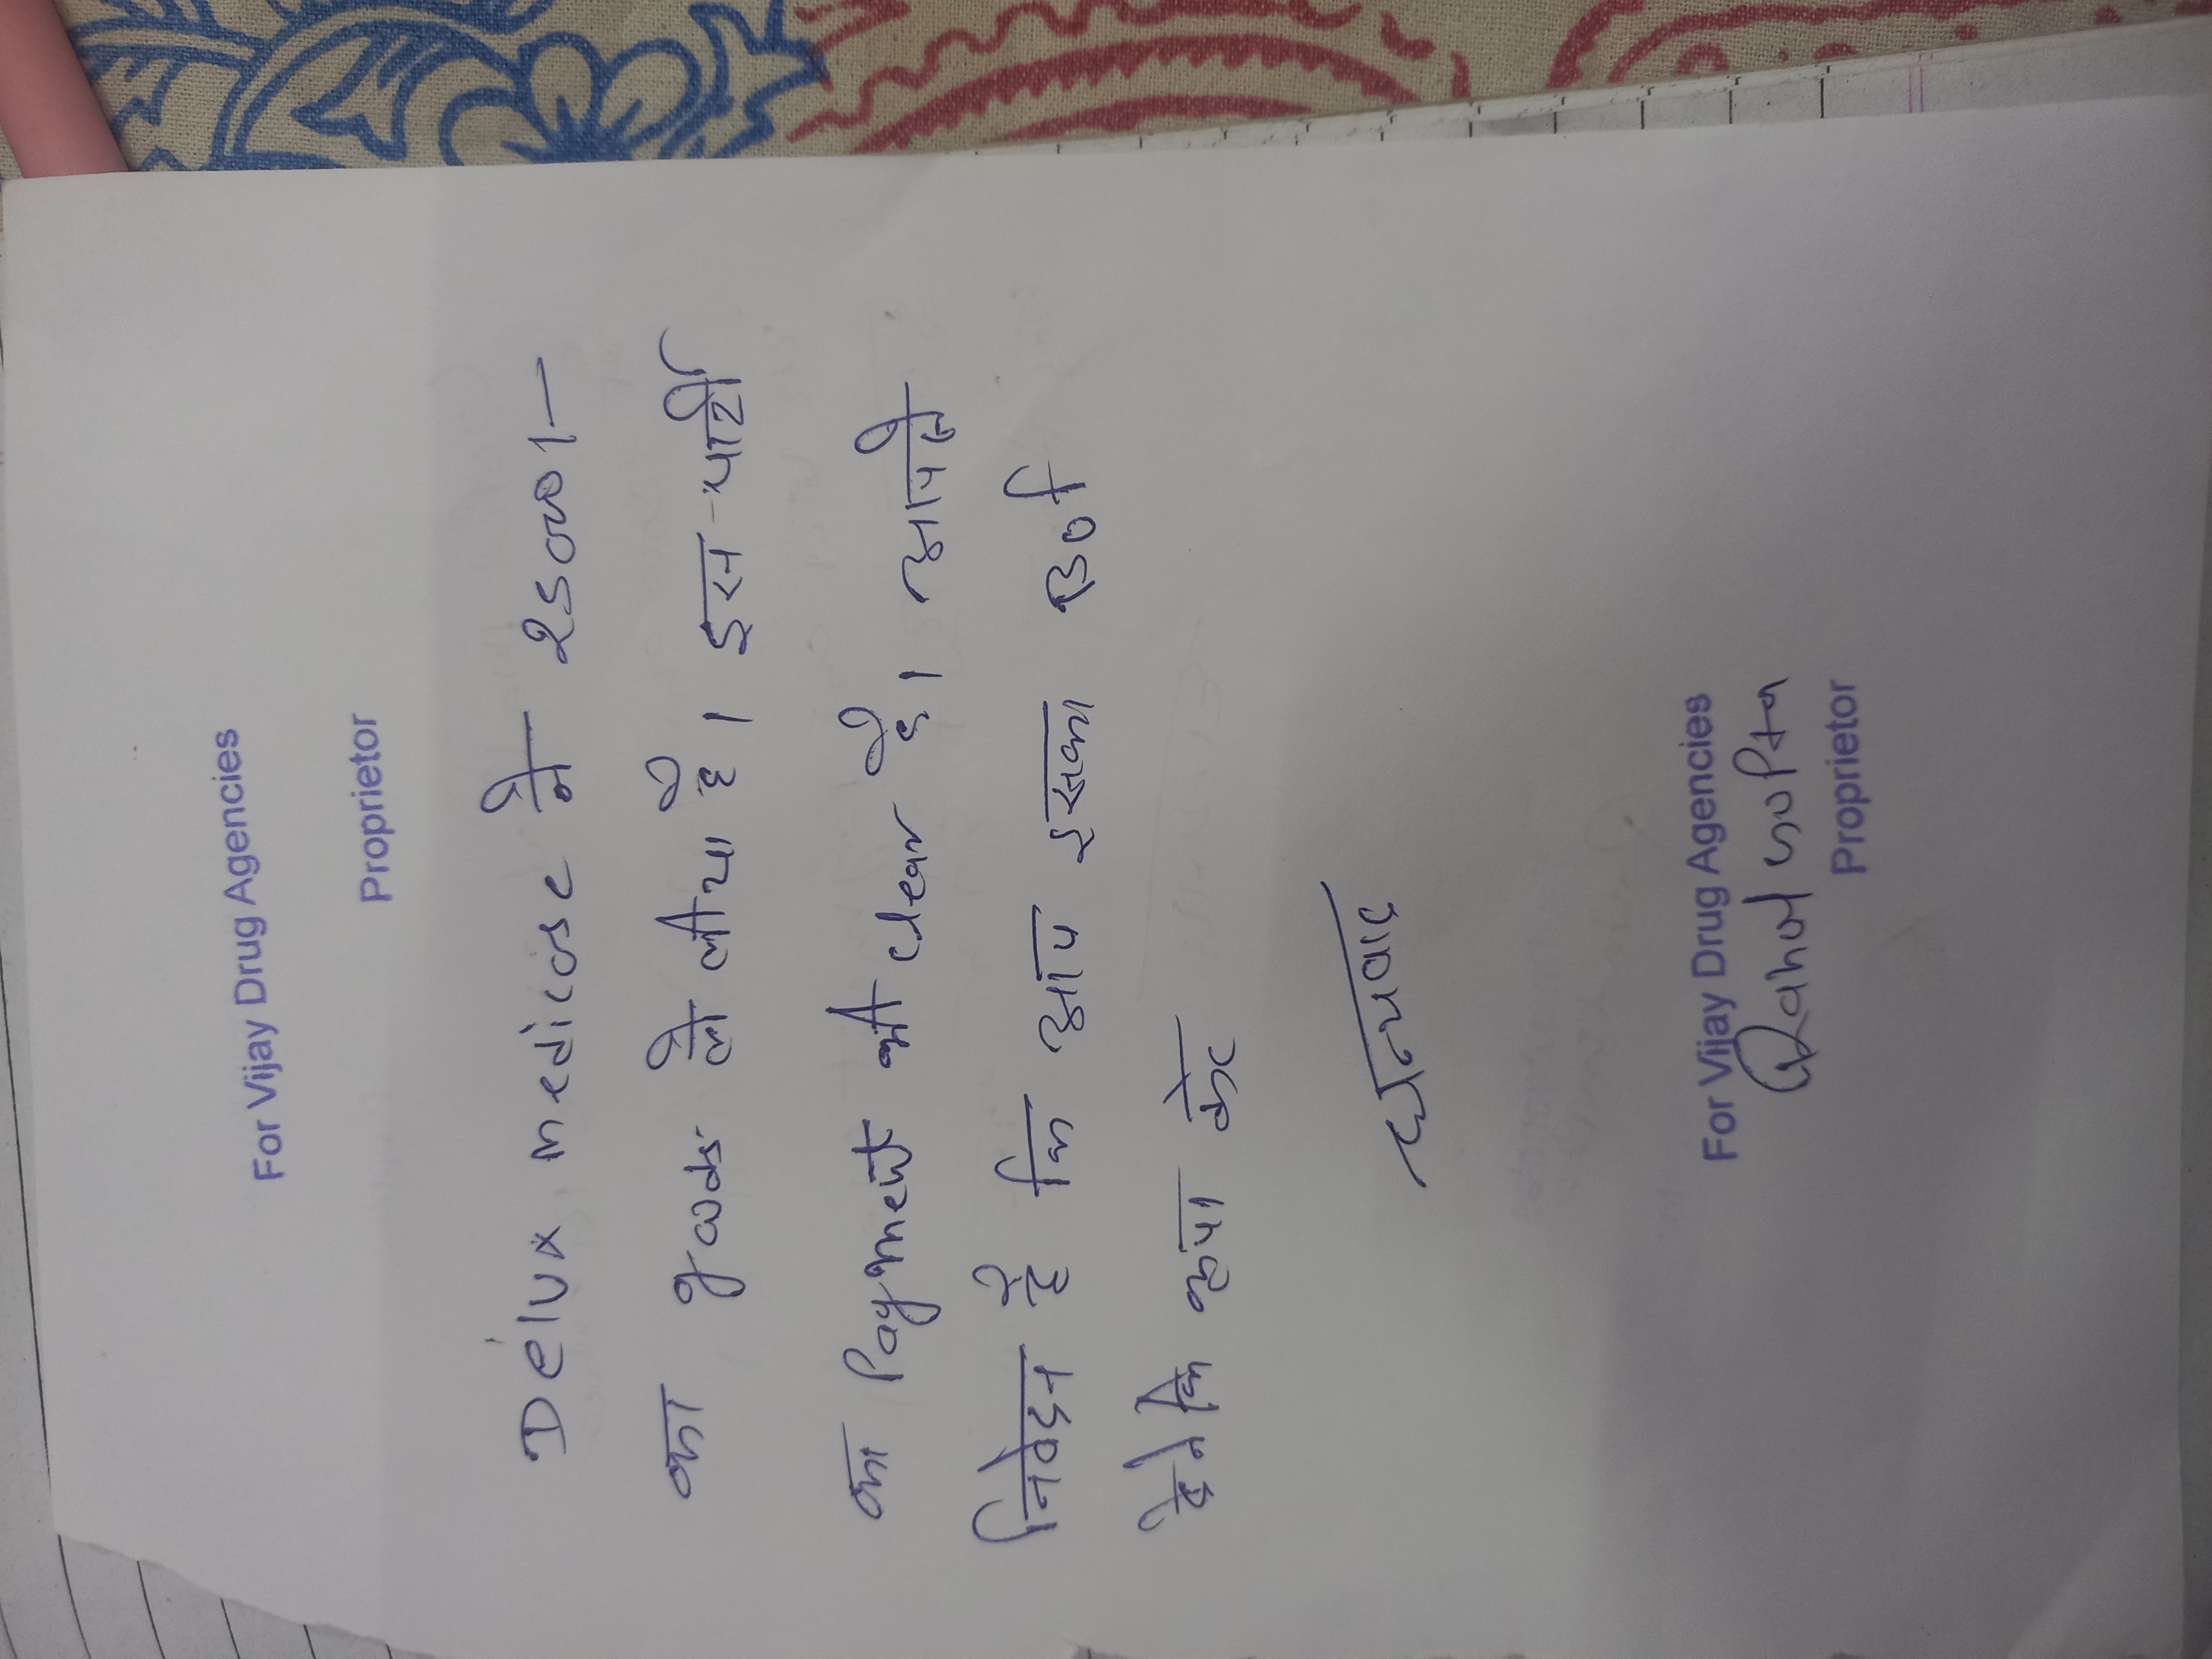 For Vijay Drug Agencies
Proprietor
Delux medicose ने 25000/-
का goods ले लीया है। इस पार्टी
का Payment भी clear है। आपसे
निवेदन है कि आप इसका
है। कि कृपा करे
धन्यवाद
For Vijay Drug Agencies
Rahul Gupta
Proprietor